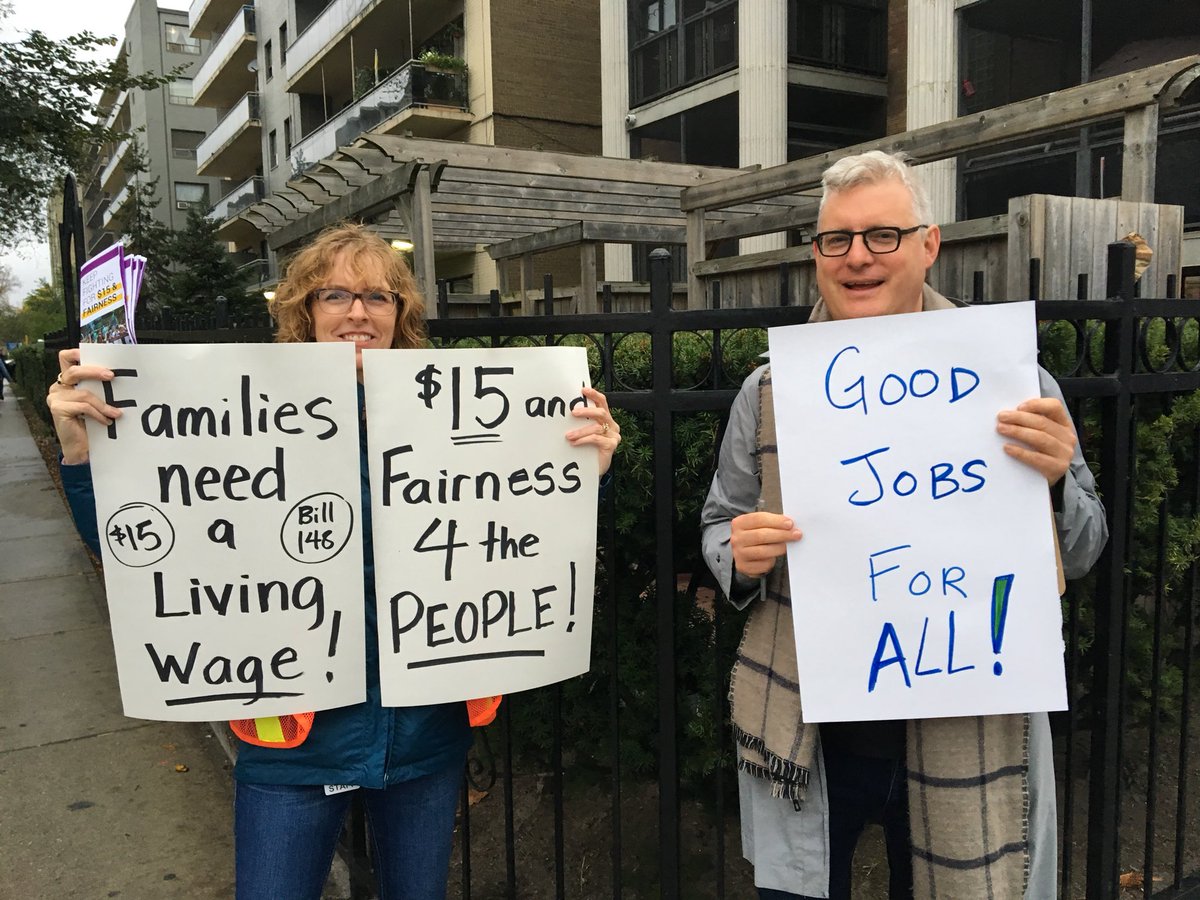 KEEP
FIGHTING
FOR $15 &
FAIRNESS
Families
need
a
$15
Bill
148
Living
Wage!
$15 and
Fairness
4 the
PEOPLE!
GOOD
JOBS
FOR
ALL!
STAFF